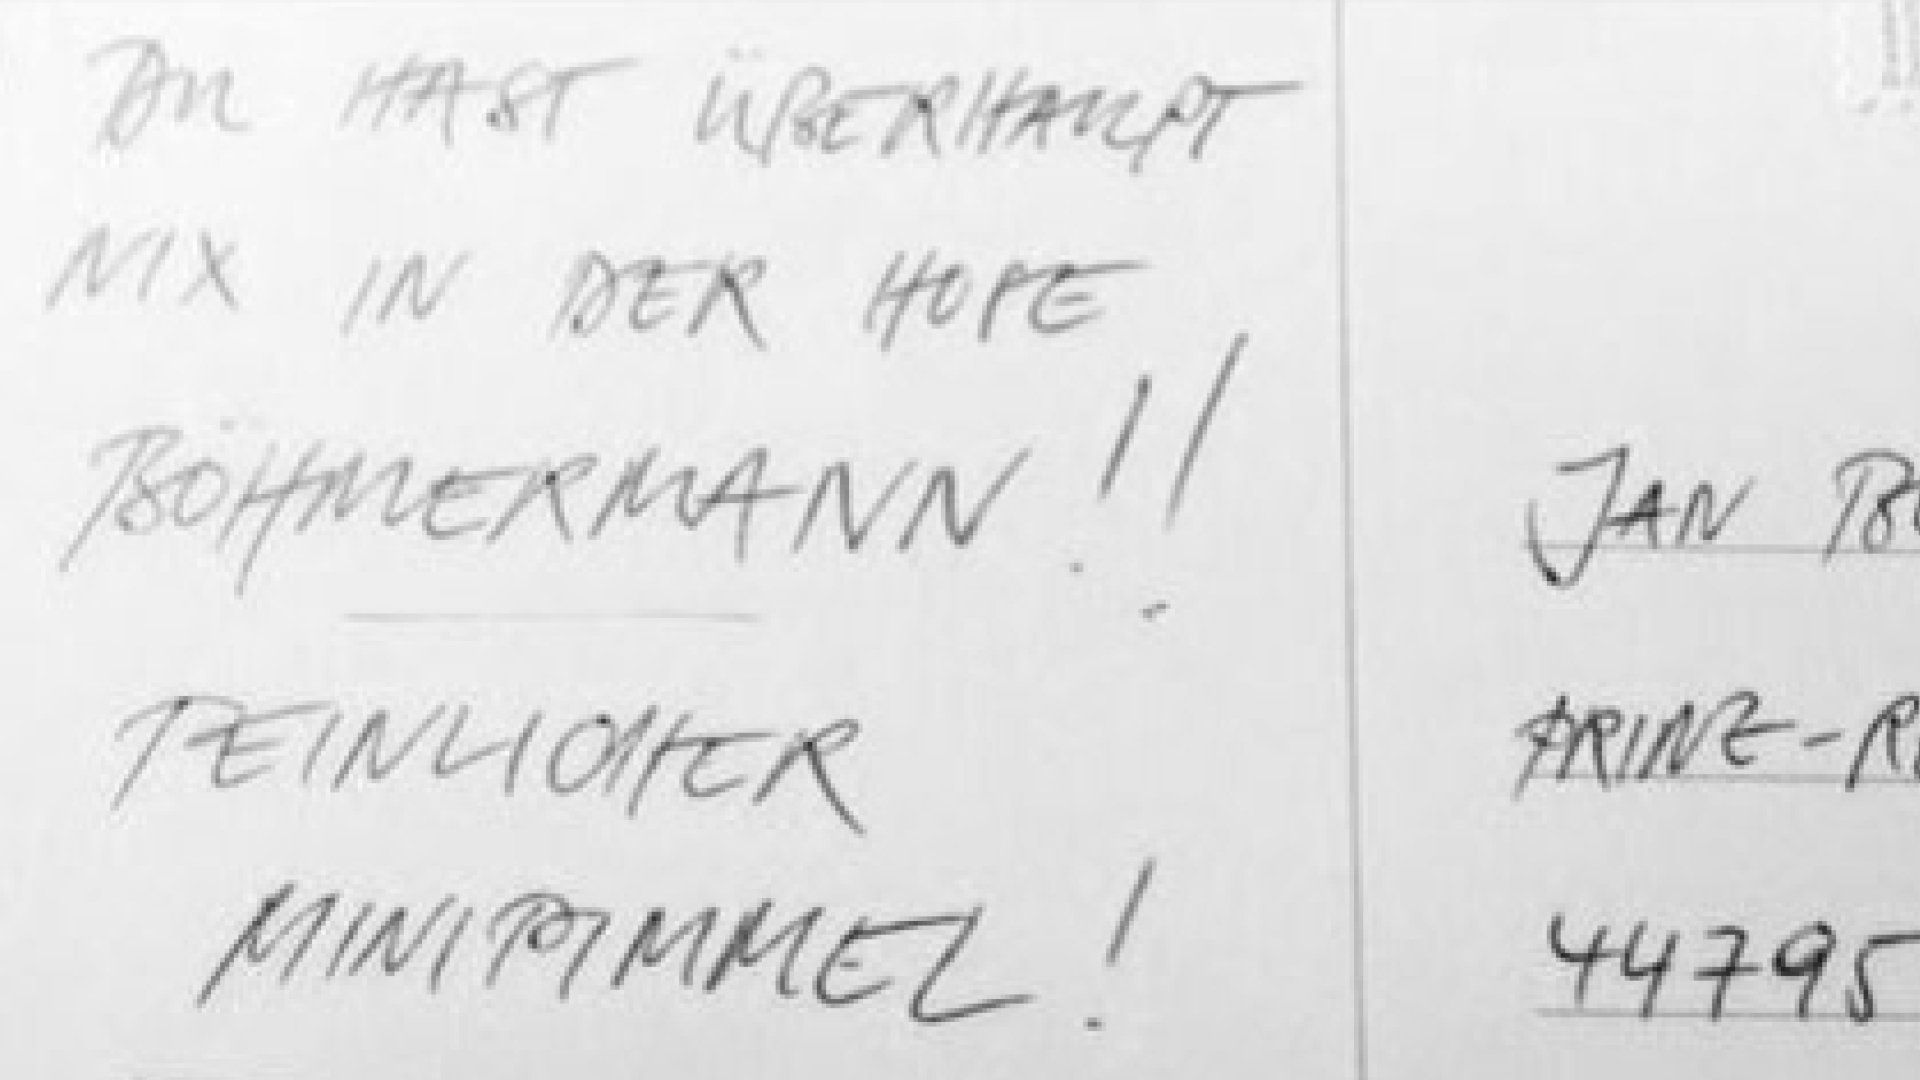 DU HAST ÜBERHAUPT
NIX IN DER HOPE
BÖHMERMANN!!
PEINLICHER
MINIPIMMEL!
JAN BÖ
PRINZ-R
44795